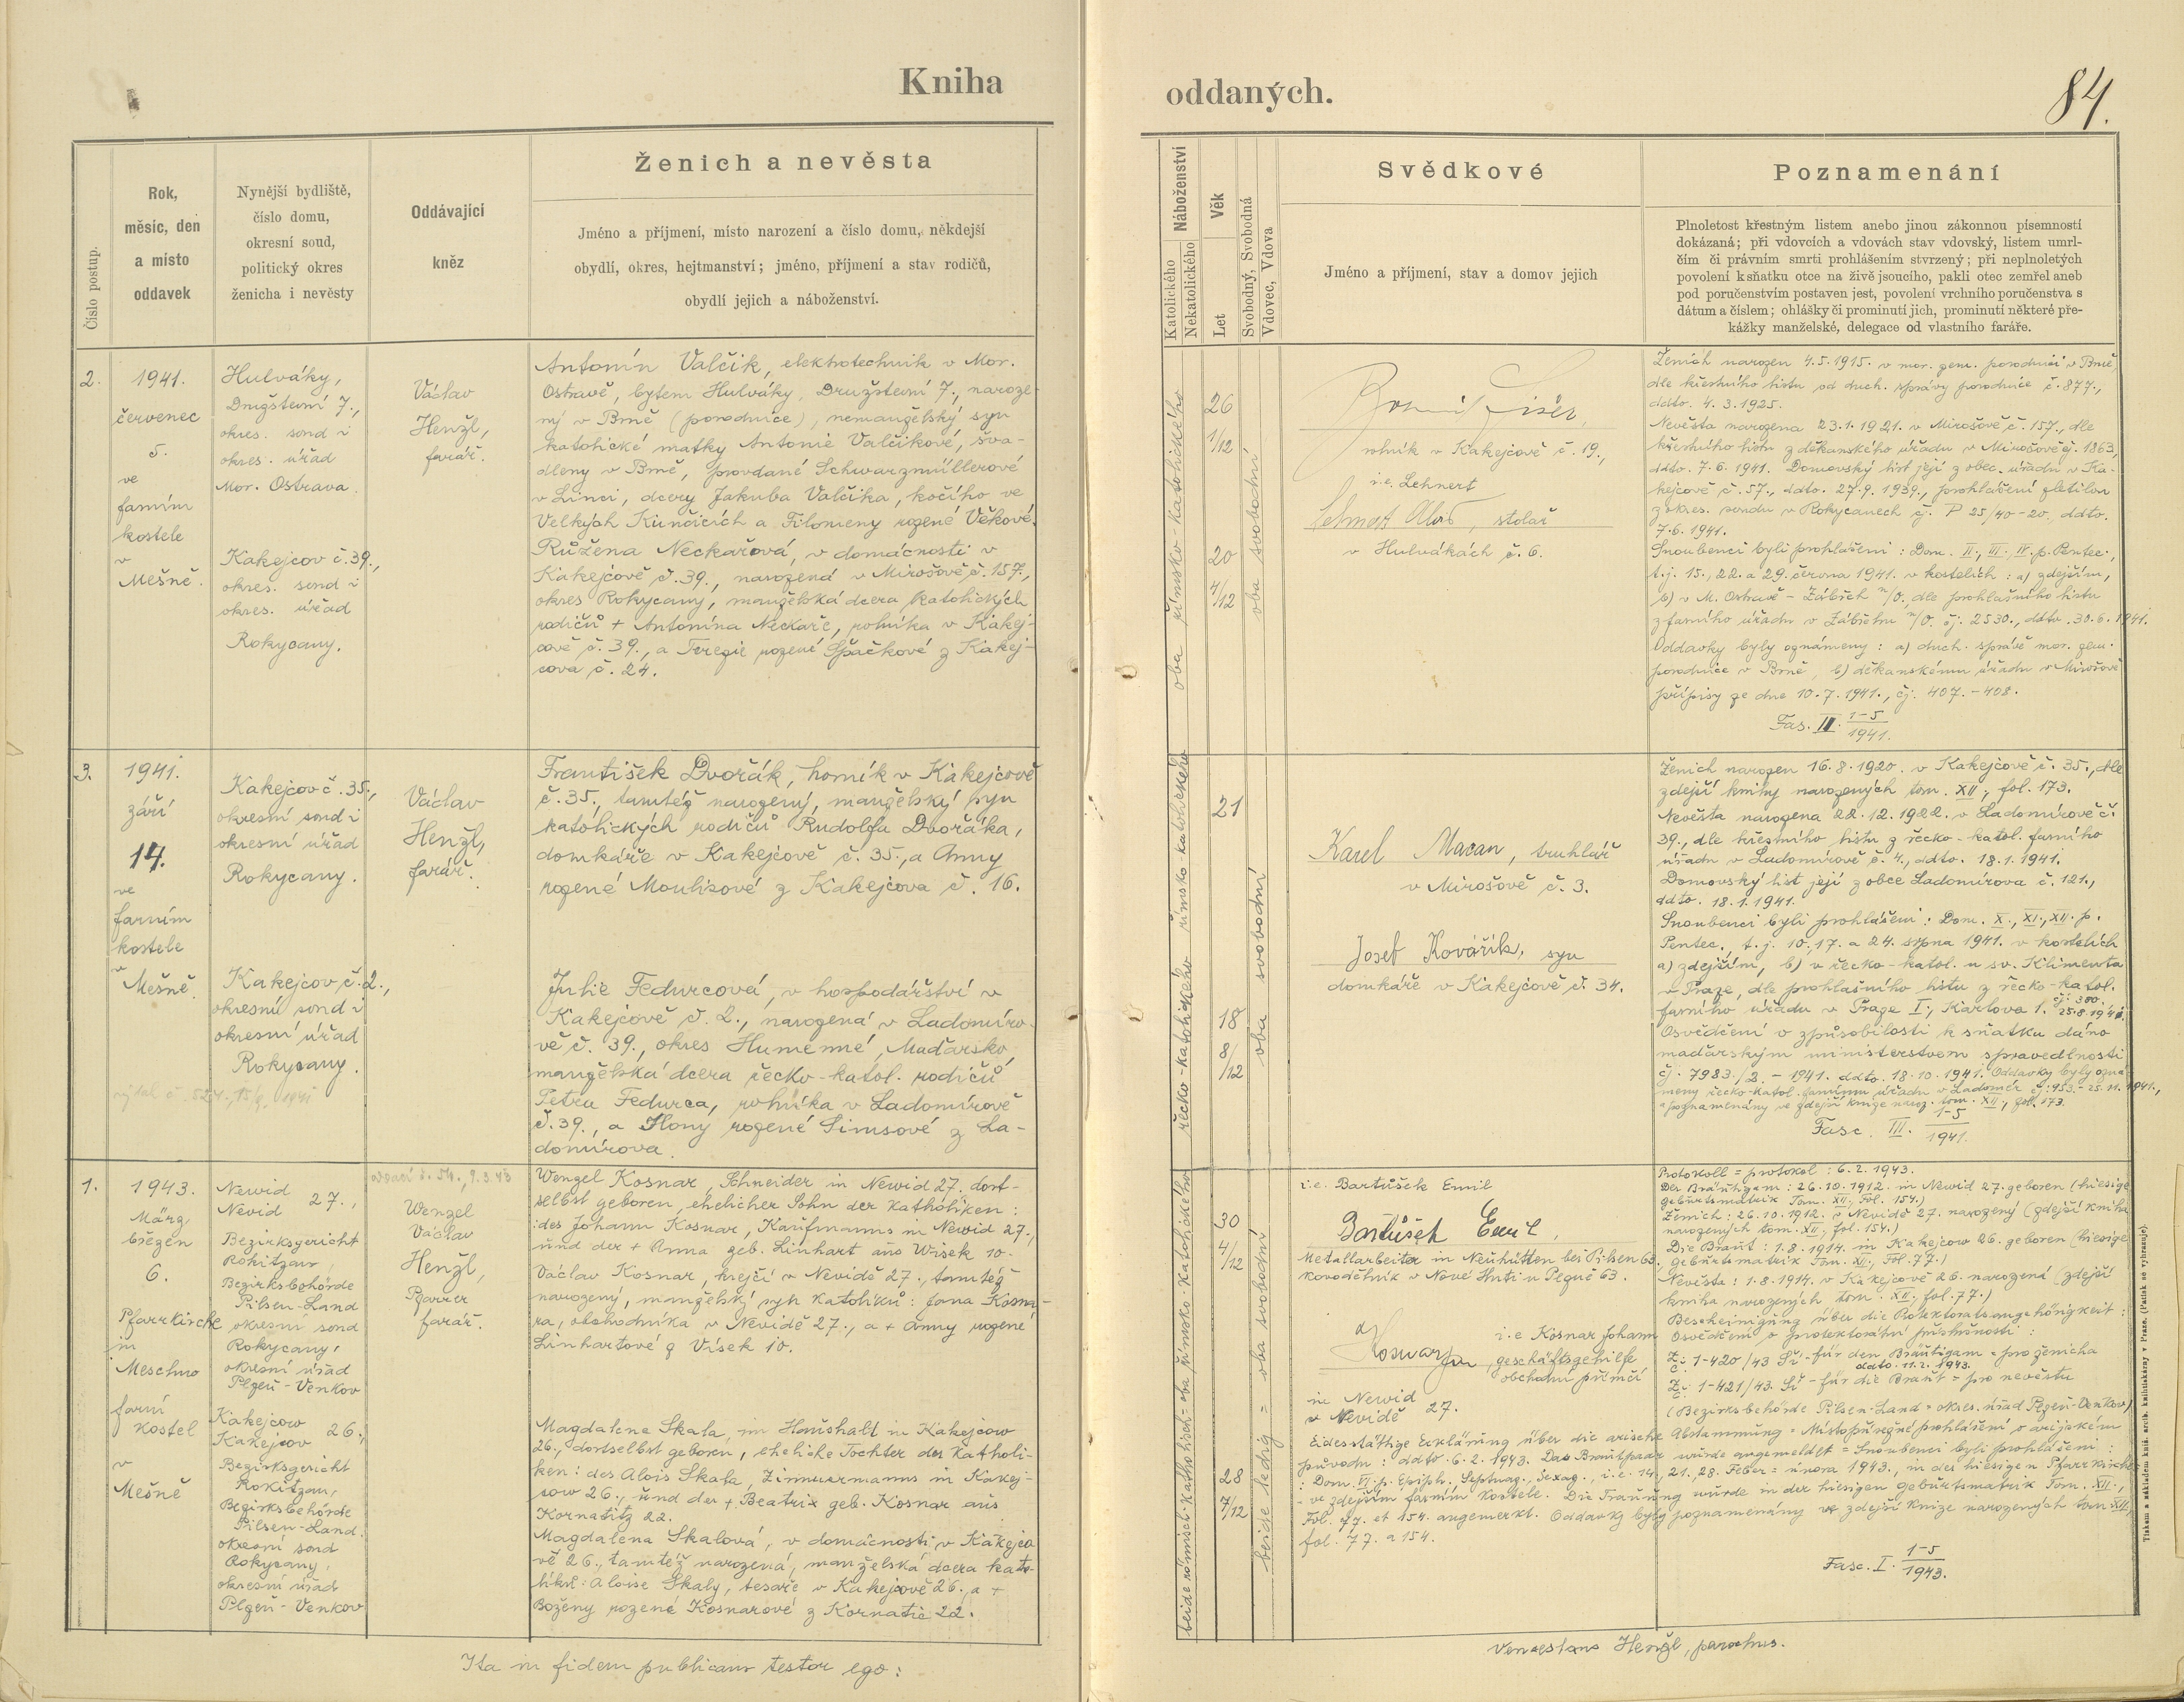 Kniha
oddaných.
84.
Číslo postup.
Rok,
měsíc, den
a místo
oddavek
Nynější bydliště,
číslo domu,
okresní soud,
politický okres
ženicha i nevěsty
Oddávající
kněz
Ženich a nevěsta
Jméno a příjmení, místo narození a číslo domu, někdejší
obydlí, okres, hejtmanství; jméno, příjmení a stav rodičů,
obydlí jejich a náboženství.
Náboženství
Katolického
Nekatolického
Věk
Let
Svobodný, Svobodná
Vdovec, Vdova
Svědkové
Jméno a příjmení, stav a domov jejich
Poznamenání
Plnoletost křestným listem anebo jinou zákonnou písemností
dokázaná; při vdovcích a vdovách stav vdovský, listem umrl-
čím či právním smrti prohlášením stvrzený; při neplnoletých
povolení k sňatku otce na živě jsoucího, pakli otec zemřel aneb
pod poručenstvím postaven jest, povolení vrchního poručenstva s
dátum a číslem; ohlášky či prominutí jich, prominutí některé pře-
kážky manželské, delegace od vlastního faráře.
2.
1941.
červenec
5.
ve
farním
kostele
v
Mešně.
Hulváky,
Družstevní 7.,
okres. soud i
okres. úřad
Mor. Ostrava.
Kakejcov č. 39.,
okres. soud i
okres. úřad
Rokycany.
Václav
Henžl,
farář.
Antonín Valčík, elektrotechnik v Mor.
Ostravě, bytem Hulváky, Družstevní 7., naroze-
ný v Brně (porodnice), nemanželský syn
katolické matky Antonie Valčíkové, šva-
dleny v Brně, provdané Schwarzmüllerové
v Linci, dcery Jakuba Valčíka, kočího ve
Velkých Kunčicích a Filomeny rozené Věkové.
Růžena Neckařová, v domácnosti v
Kakejcově č. 39., narozená v Mirošově č. 157.,
okres Rokycany, manželská dcera katolických
rodičů + Antonína Neckaře, rolníka v Kakej-
cově č. 39., a Terezie rozené Špačkové z Kakej-
cova č. 24.
oba římsko-katolického
26
1/12
20
4/12
oba svobodní
rolník v Kakejcově č. 19.,
i.e. Lehnert
Lehnert Alois, stolař
v Hulvákách č. 6.
Ženich narozen 4.5.1915. v mor. zem. porodnici v Brně,
dle křestního listu od duch. správy porodnice č. 877.,
ddto. 4.3.1925.
Nevěsta narozena 23.1.1921. v Mirošově č. 157., dle
křestního listu z děkanského úřadu v Mirošově čj. 1863,
ddto. 7.6.1941. Domovský list její z obec. úřadu v Ka-
kejcově č. 57., ddto. 27.9.1939., prohlášení zletilou
z okres. soudu v Rokycanech čj. P 25/40-20., ddto.
7.6.1941.
Snoubenci byli prohlášeni: Dom. II., III., IV. p. Pentec.,
t.j. 15., 22. a 29. června 1941. v kostelích: a) zdejším,
b) v M. Ostravě - Zábřeh n/O. dle prohlašního listu
z farního úřadu v Zábřehu n/O. čj. 2530., ddto. 30.6.1941.
Oddavky byly oznámeny: a) duch. správě mor. zem.
porodnice v Brně, b) děkanskému úřadu v Mirošově
přípisy ze dne 10.7.1941., čj. 407.-408.
Fas. II. 1-5/1941.
3.
1941.
září
14.
ve
farním
kostele
v
Mešně.
Kakejcov č. 35.,
okresní soud i
okresní úřad
Rokycany.
Kakejcov č. 2.,
okresní soud i
okresní úřad
Rokycany.
Václav
Henžl,
farář.
František Dvořák, horník v Kakejcově
č. 35., tamtéž narozený, manželský syn
katolických rodičů Rudolfa Dvořáka,
domkáře v Kakejcově č. 35., a Anny
rozené Moulisové z Kakejcova č. 16.
Julie Fedurcová, v hospodářství v
Kakejcově č. 2., narozená v Ladomíro-
vě č. 39., okres Humenné, Maďarsko,
manželská dcera řecko-katol. rodičů
Petra Fedurca, rolníka v Ladomírově
č. 39., a Ilony rozené Simsové z La-
domírova.
řecko-katolického římsko-katolického
21
18
8/12
oba svobodní
Karel Macan, truhlář
v Mirošově č. 3.
Josef Kovářík, syn
domkáře v Kakejcově č. 34.
Ženich narozen 16.8.1920. v Kakejcově č. 35., dle
zdejší knihy narozených tom. XII., fol. 173.
Nevěsta narozena 22.12.1922. v Ladomírově č.
39., dle křestního listu z řecko-katol. farního
úřadu v Ladomírově č. 4., ddto. 18.1.1941.
Domovský list její z obce Ladomírova č. 121.,
ddto. 18.1.1941.
Snoubenci byli prohlášeni: Dom. X., XI., XII. p.
Pentec., t.j. 10., 17. a 24. srpna 1941. v kostelích
a) zdejším, b) v řecko-katol. u sv. Klimenta
v Praze, dle prohlašního listu z řecko-katol.
farního úřadu v Praze I., Karlova 1. čj. 300. 25.8.1941.
Osvědčení o způsobilosti k sňatku dáno
maďarským ministerstvem spravedlnosti
čj. 7983./2. - 1941. ddto. 18.10.1941. Oddavky byly ozná-
meny řecko-katol. farnímu úřadu v Ladomér čj. 953. - 25.11.1941.,
a poznamenány ve zdejší knize naroz. tom. XII., fol. 173.
Fasc. III. 1-5/1941.
1.
1943.
März
březen
6.
Pfarrkirche
in
Meschno
farní
kostel
v
Mešně
Newid
Nevid 27.,
Bezirksgericht
Rokitzan,
Bezirksbehörde
Pilsen-Land
okresní soud
Rokycany,
okresní úřad
Plzeň-Venkov
Kakejcow
Kakejcov 26.,
Bezirksgericht
Rokitzan,
Bezirksbehörde
Pilsen-Land.
okresní soud
Rokycany,
okresní úřad
Plzeň-Venkov
Wenzel
Václav
Henžl,
Pfarrer
farář.
Wenzel Kosnar, Schneider in Newid 27. dort-
selbst geboren, ehelicher Sohn der Katholiken:
des Johann Kosnar, Kaufmanns in Newid 27.,
und der + Anna geb. Linhart aus Wisek 10.
Václav Kosnar, krejčí v Nevidě 27., tamtéž
narozený, manželský syn katolíků: Jana Kosna-
ra, obchodníka v Nevidě 27., a + Anny rozené
Linhartové z Vísek 10.
Magdalene Skala, im Haushalt in Kakejcow
26., dortselbst geboren, eheliche Tochter der Katholi-
ken: des Alois Skala, Zimmermanns in Kakej-
cow 26., und der + Beatrix geb. Kosnar aus
Kornatitz 22.
Magdalena Skalová, v domácnosti v Kakejco-
vě 26., tamtéž narozená, manželská dcera kato-
líků: Aloise Skaly, tesaře v Kakejcově 26., a +
Boženy rozené Kosnarové z Kornatic 22.
beide römisch-katholisch = oba římsko-katolického
30
4/12
28
7/12
beide ledig = oba svobodní
i.e. Bartůšek Emil
Bartůšek Emil,
Metallarbeiter in Neuhütten bei Pilsen 63.
kovodělník v Nové Huti u Plzně 63.
i.e Kosnar Johann
Kosnar Jan, geschäftsgehilfe
obchodní příručí
in Newid
v Nevidě 27.
Protokoll = protokol: 6.2.1943.
Der Bräutigam: 26.10.1912. in Newid 27. geboren (hiesige
geburtsmatrik Tom. XII., Fol. 154.)
Ženich: 26.10.1912. v Nevidě 27. narozený (zdejší kniha
narozených tom. XII., fol. 154.)
Die Braut: 1.8.1914. in Kakejcow 26. geboren (hiesige
geburtsmatrik Tom. XII., Fol. 77.)
Nevěsta: 1.8.1914. v Kakejcově 26. narozená (zdejší
kniha narozených tom. XII., fol. 77.)
Bescheinigung über die Protektoratsangehörigkeit:
Osvědčení o protektorátní příslušnosti:
Z. č. 1-420/43 Ši - für den Bräutigam = pro ženicha
ddto. 11.2.1943.
Z. č. 1-421/43. Ši - für die Braut = pro nevěstu
(Bezirksbehörde Pilsen-Land = okres. úřad Plzeň-Venkov)
Eidesstättige Erklärung über die arische Abstammung = Místopřísežné prohlášení o arijském
původu: ddto. 6.2.1943. Das Brautpaar wurde angemeldet = Snoubenci byli prohlášeni:
: Dom. VI. p. Epiph., Septuag., Sexag., i.e. 14., 21., 28. Feber = února 1943., in der hiesigen Pfarrkirche
= ve zdejším farním kostele. Die Trauung wurde in der hiesigen geburtsmatrik Tom. XII.,
Fol. 77. et 154. angemerkt. Oddavky byly poznamenány ve zdejší knize narozených tom. XII.,
fol. 77. a 154.
Fasc. I. 1-5/1943.
Ita in fidem publicam testor ego:
Venceslaus Henžl, parochus.